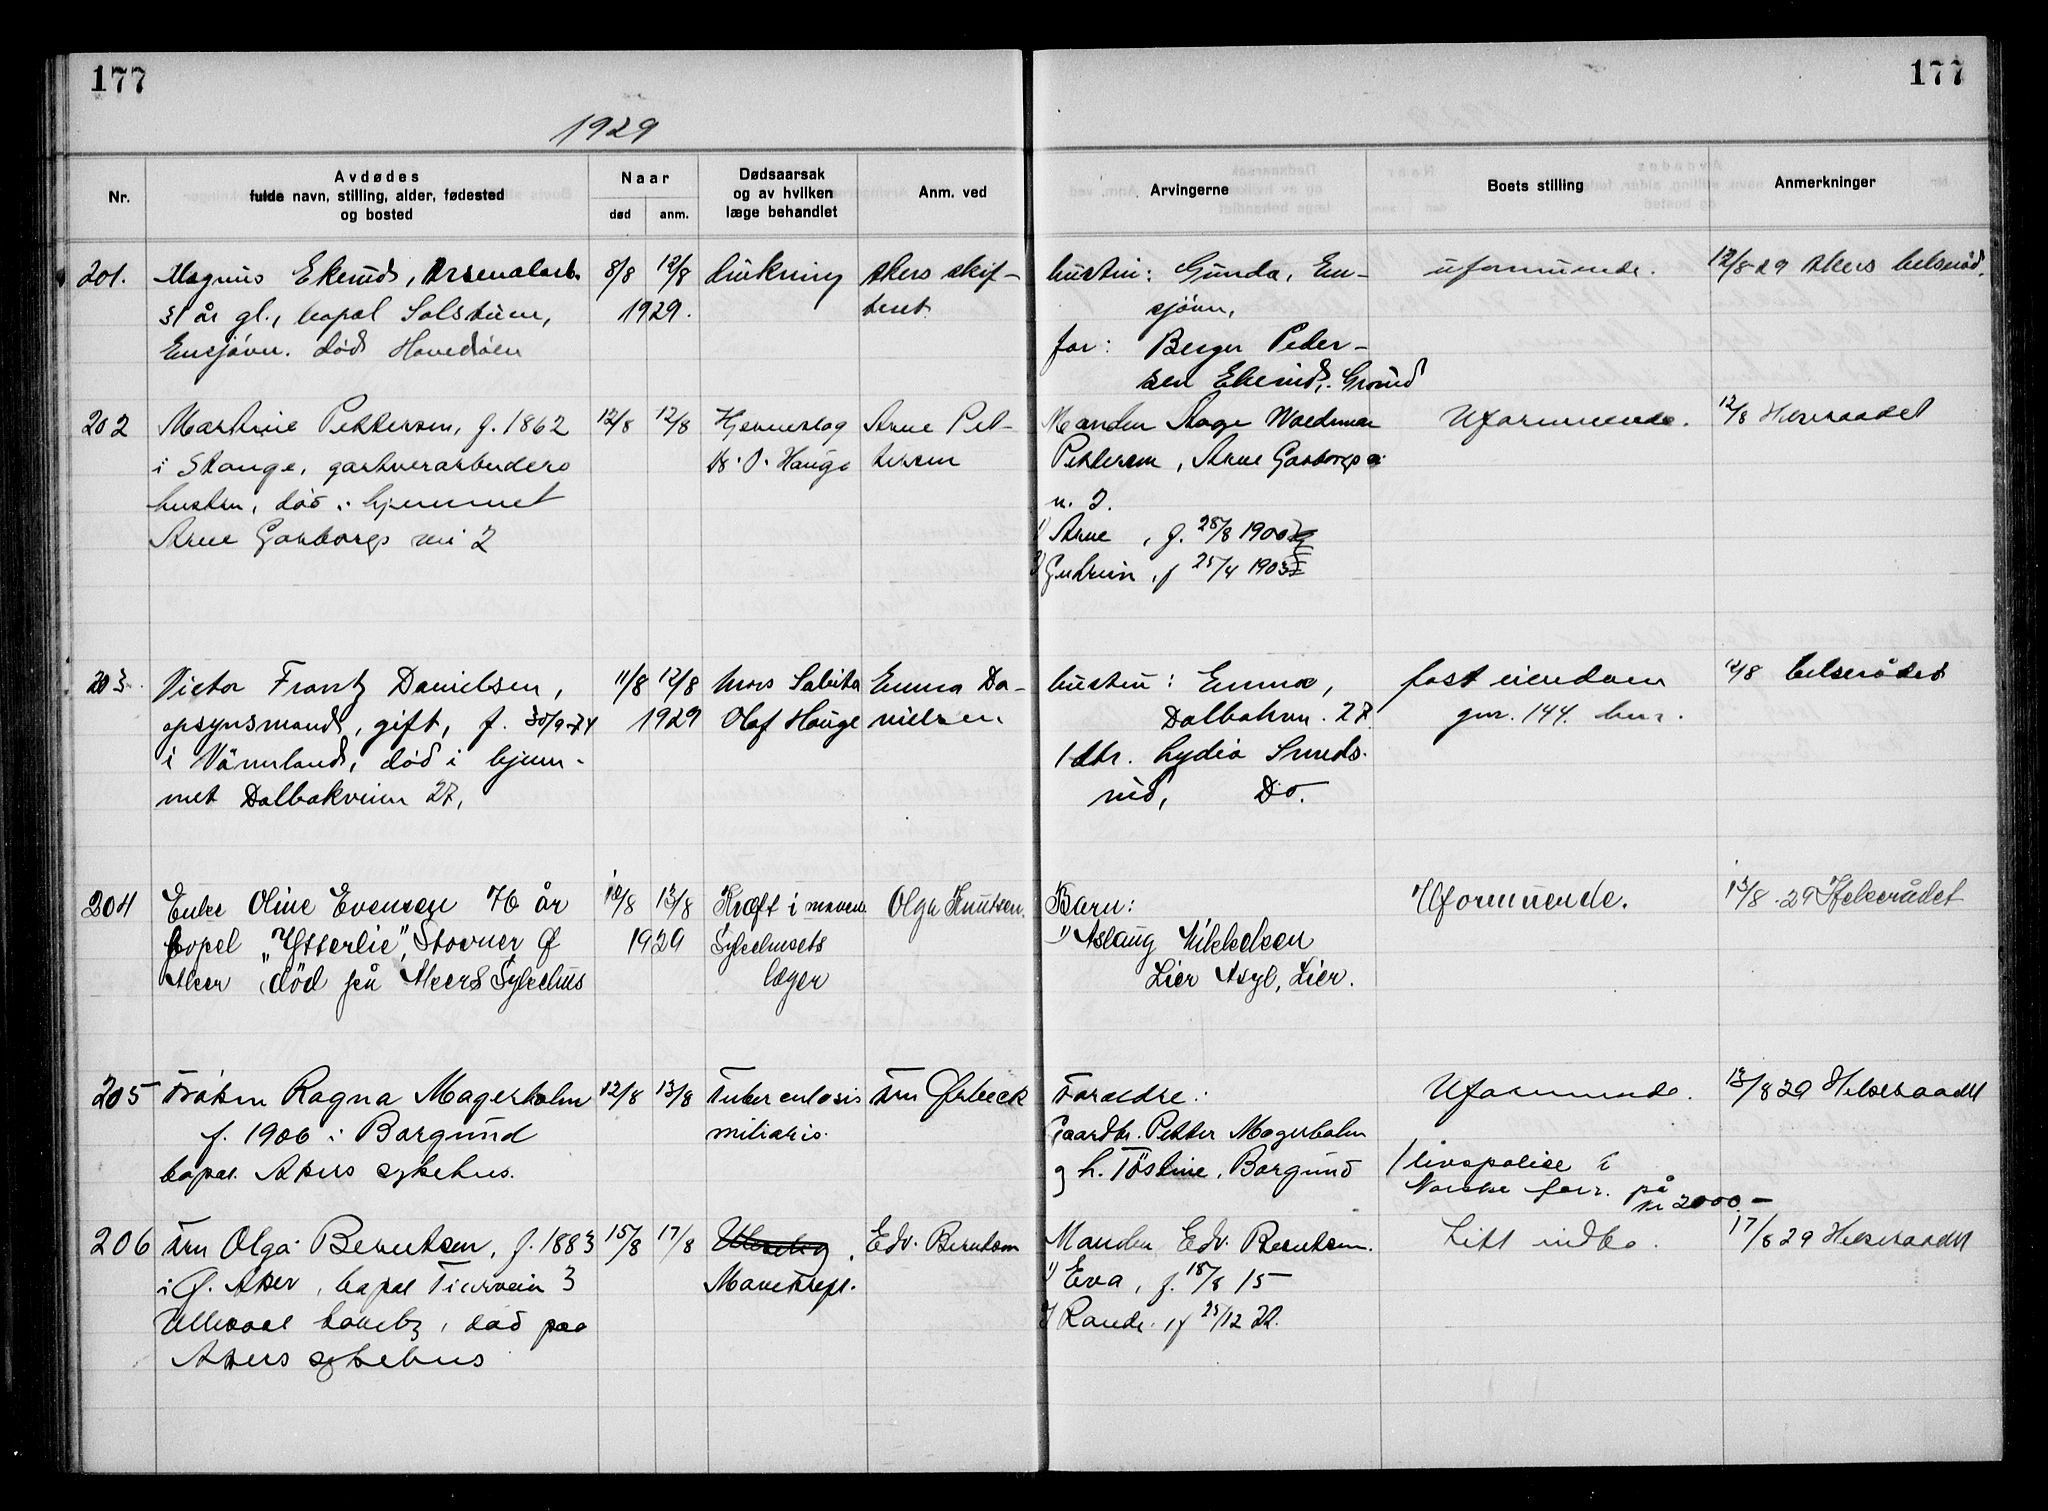 177
177
1929
Nr.
Avdødes
fulde navn, stilling, alder, fødested
og bosted
Naar
død
anm.
Dødsaarsak
og av hvilken
læge behandlet
Anm. ved
Arvingerne
Boets stilling
Anmerkninger
201. Magnus Ekerud, Arsenalarb. 8/8 12/8 drukning Akers skif-
31 år gl., bopæl Solstuen, 1929. teret.
Ensjøvn. død Hovedøen
hustru: Gunda, En- uformuende. 12/8-29 Akers helseråd.
sjøvn,
far: Berger Peder-
sen Ekerud, Grorud
202 Martine Pettersen, f. 1862 12/8 12/8 Hjerneslag Arne Pet-
i Stange, gartnerarbeiders O. Hauge tersen
hustru, død i hjemmet
Arne Garborgs vei 2
Manden Aage Waldemar Uformuende. 12/8 Helseraadet
Pettersen, Arne Garborgs
v. 2.
1) Arne, f. 28/8 1900
2) Gudrun, f 25/4 1903
203. Victor Frantz Danielsen, 11/8 12/8 Mors Subita Emma Da-
opsynsmand, gift, f. 30/9-74 1929 Olaf Hauge nielsen
i Värmland, død i hjem-
met Dalbakveien 27,
hustru: Emma, fast eiendom 12/8 helserådet
Dalbakvn. 27. gnr. 144. bnr.
1 dtr. Lydia Smeds-
rud, Do.
204 Enke Oline Evensen 76 år 10/8 13/8 Kræft i maven. Olga Knutsen.
bopel "Ytterlie", Stovner Ø 1929 Sykehusets
Aker, død på Akers Sykehus læger
Barn: Uformuende. 13/8-29 Helserådet
1) Aslaug Mikkelsen
Lier Asyl, Lier.
205 Frøken Ragna Magerholm 12/8 13/8 Tuberculosis Fru Ørbeck
f. 1906 i Borgund miliaris.
bopæl Akers sykehus.
Forældre: Uformuende. 13/8 29 Helseraadet
Gaardbr. Petter Magerholm
og h. Töstine, Borgund 1 livspolise i
Norske forr. på
kr 2000.-
206 Fru Olga Berntsen, f. 1883 15/8 17/8 Edv. Berntsen
i Ø. Aker, bopæl Tiurveien 3 Mavekræft.
Ullevaal haveby, død paa
Akers sykehus
Manden Edv. Berntsen. Litt indbo. 17/8 29 Helseraadet
1) Eva, f. 18/8 15
2) Randi, f 25/12 22.